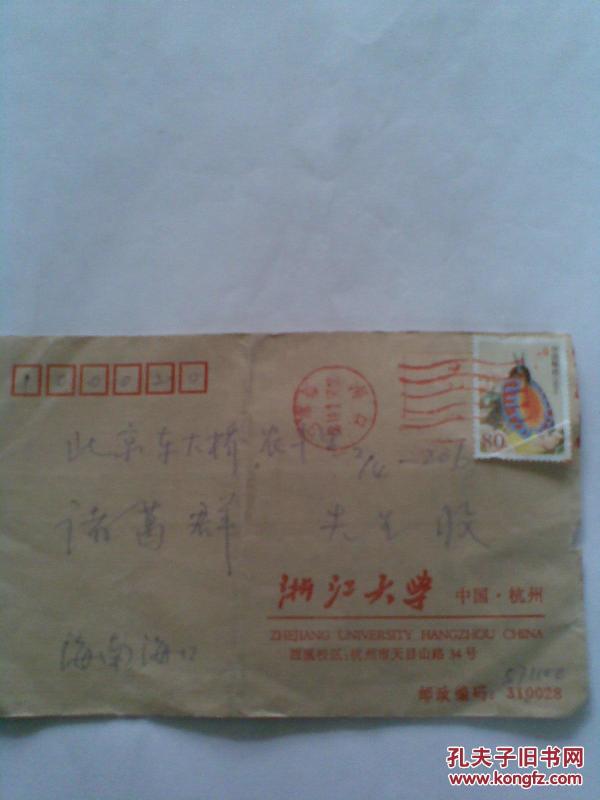 100020
80
北京东大桥农丰里2/4-201
诸葛群 先生 收
浙江大学 中国·杭州
ZHEJIANG UNIVERSITY HANGZHOU CHINA
西溪校区:杭州市天目山路34号
海南海口
571100
邮政编码:310028
孔夫子旧书网
www.kongfz.com